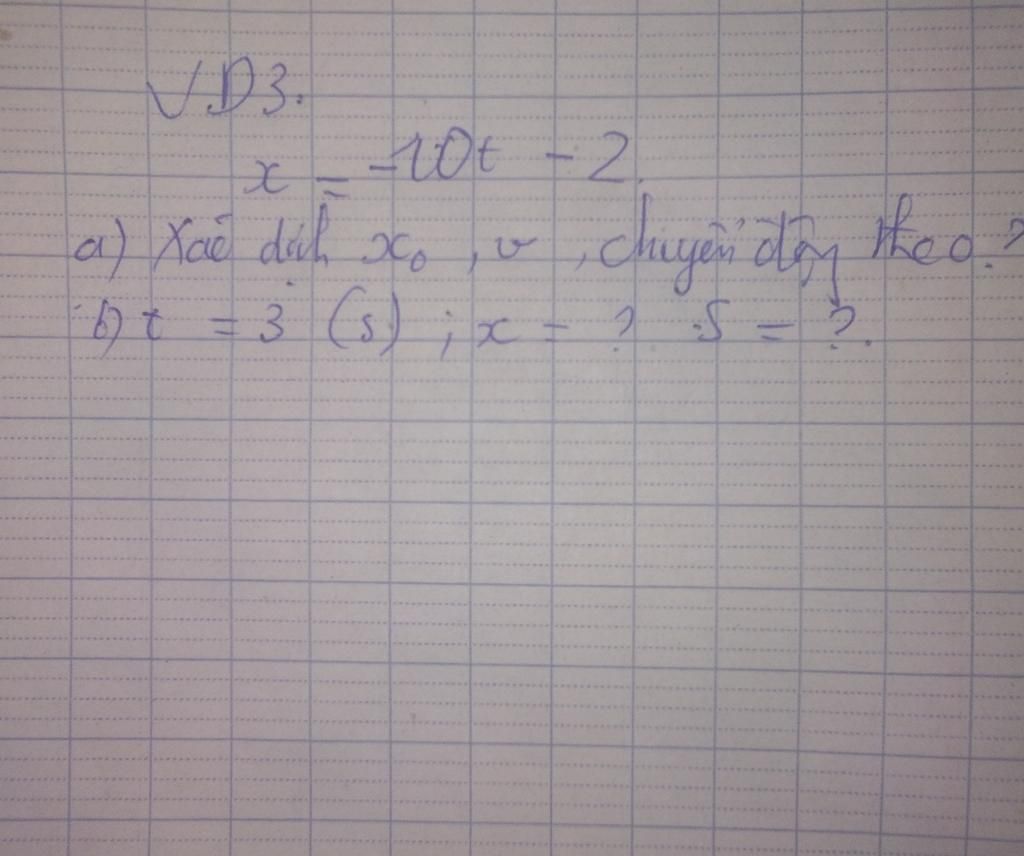 VD3.
x = -10t - 2.
a) Xác định x₀, v, chuyển động theo?
b) t = 3 (s); x = ? S = ?.